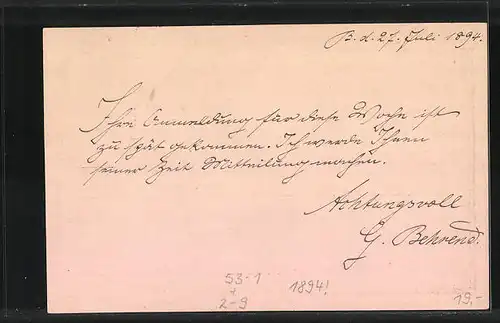 B. d. 27. Juli 1894.
Ihre Anmeldung für diese Woche ist
zu spät gekommen. Ich werde Ihnen
seiner Zeit Mitteilung machen.
Achtungsvoll
G. Behrend.
53-1
+
2-9
1894!
19,-